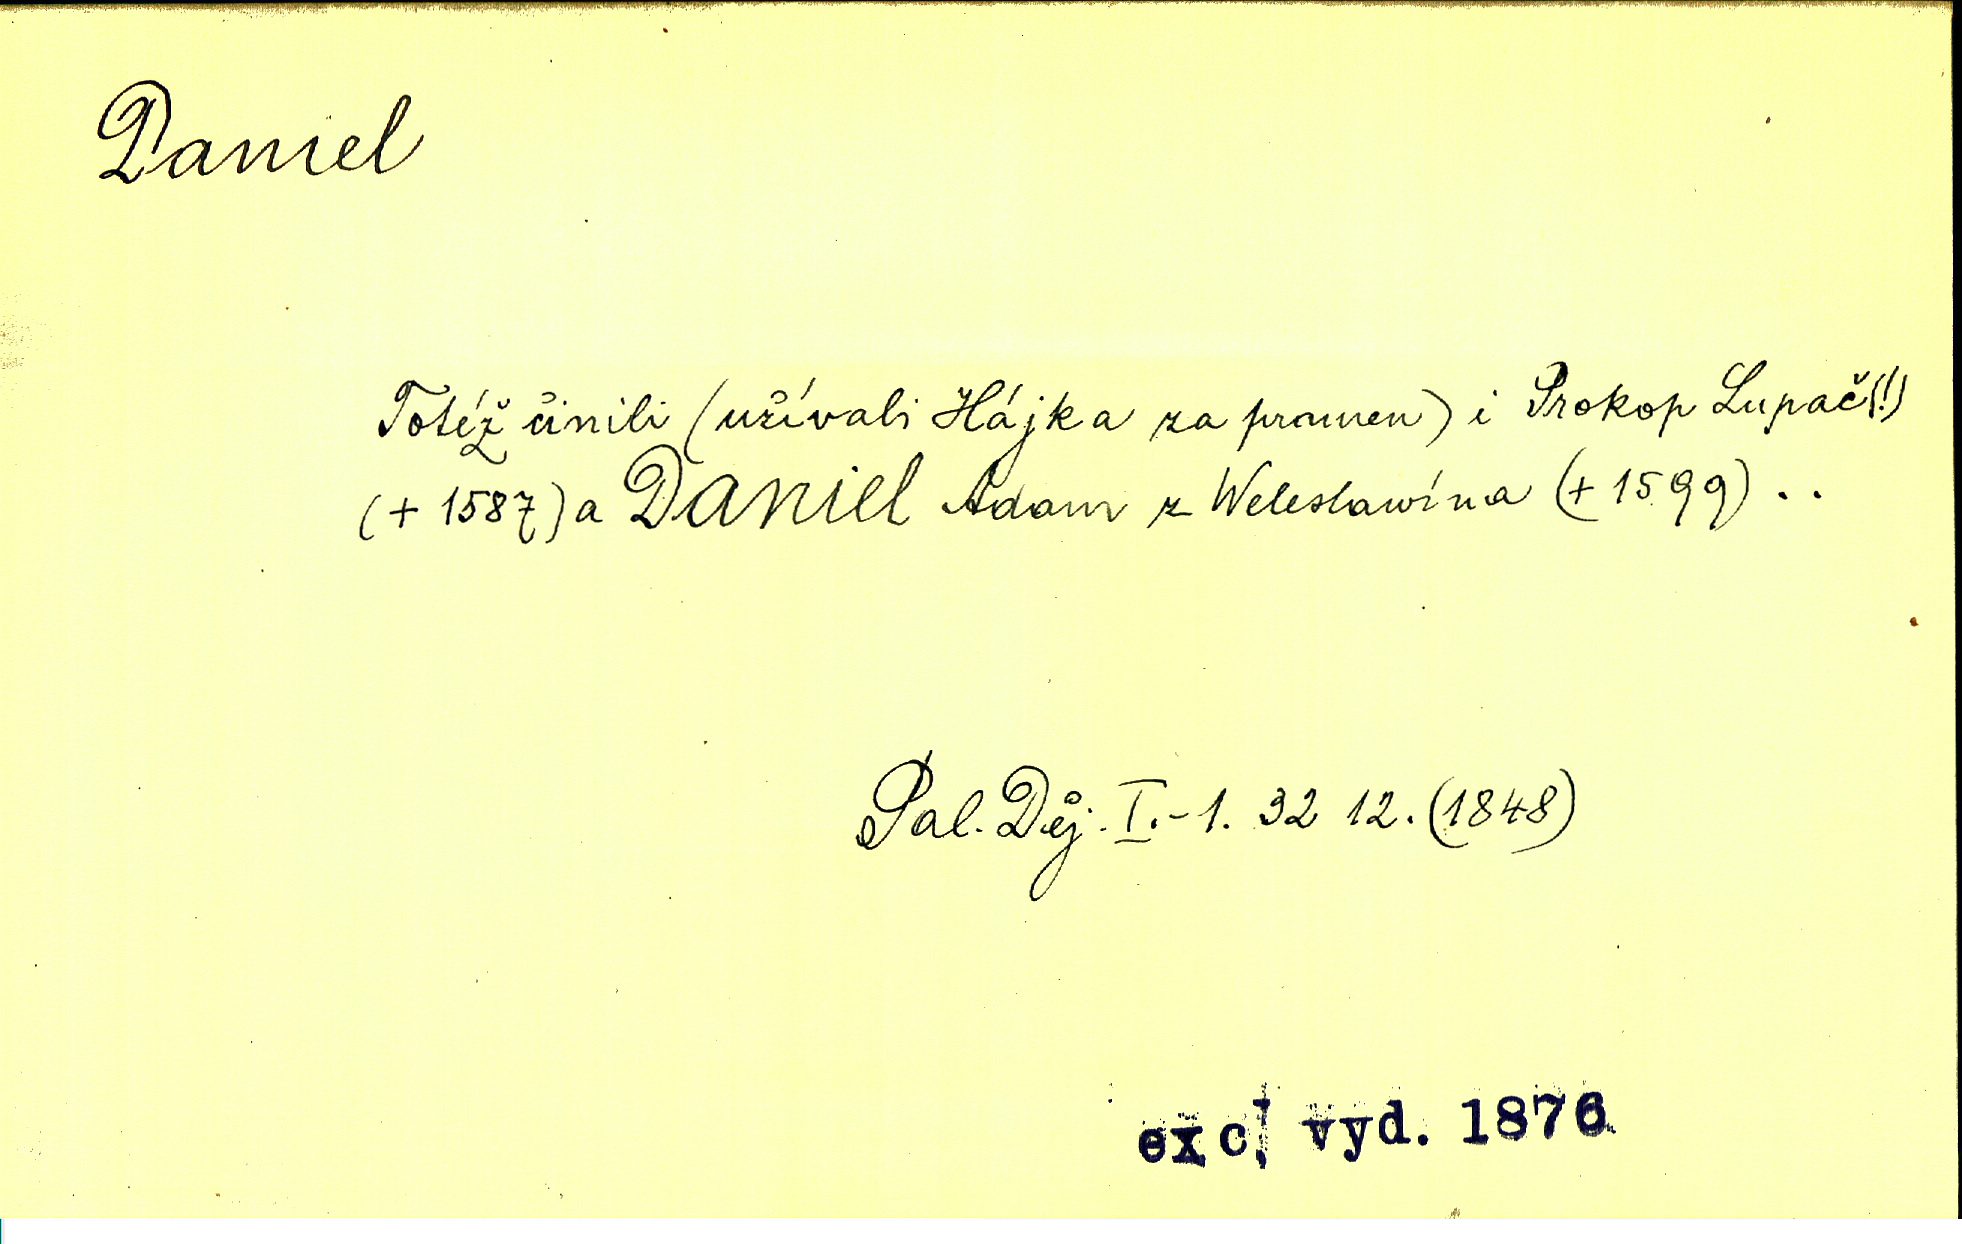 Daniel
Totéž činili (užívali Hájka za pramen) i Prokop Lupač (!)
(+ 1587) a Daniel Adam z Weleslawína (+ 1599) . .
Pal. Děj. I.-1. 32 12. (1848)
exc. vyd. 1876